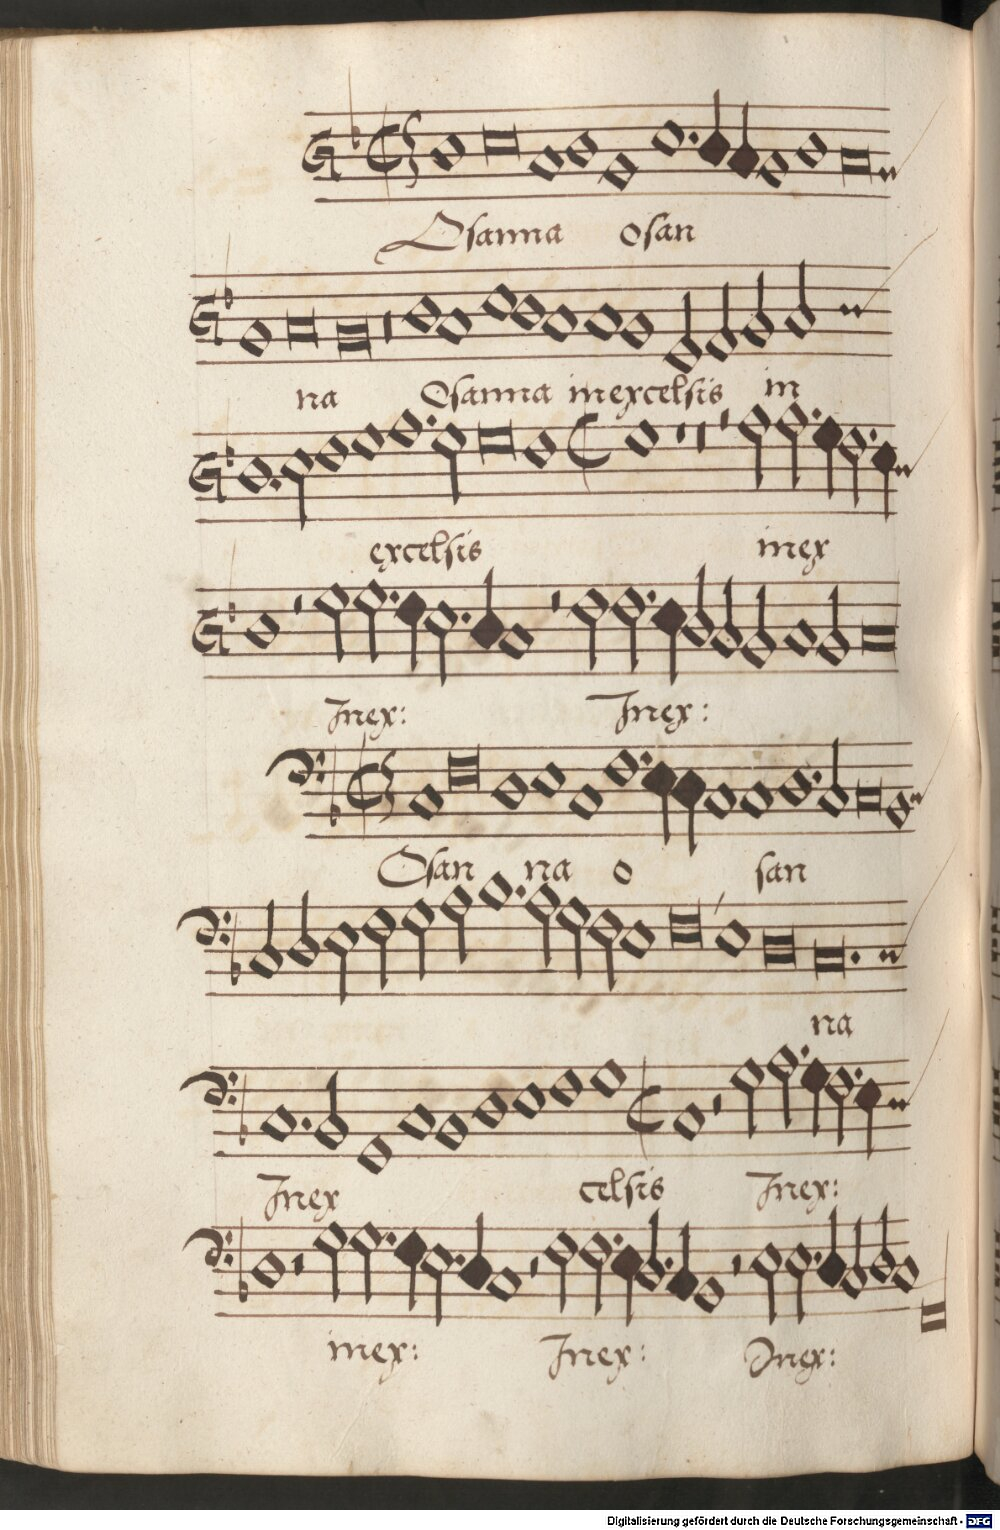 Osanna osan
na Osanna inexcelsis in
excelsis inex
Inex: Inex:
Osan na o san
na
Inex celsis Inex:
inex: Inex: Inex:
Digitalisierung gefördert durch die Deutsche Forschungsgemeinschaft - DFG